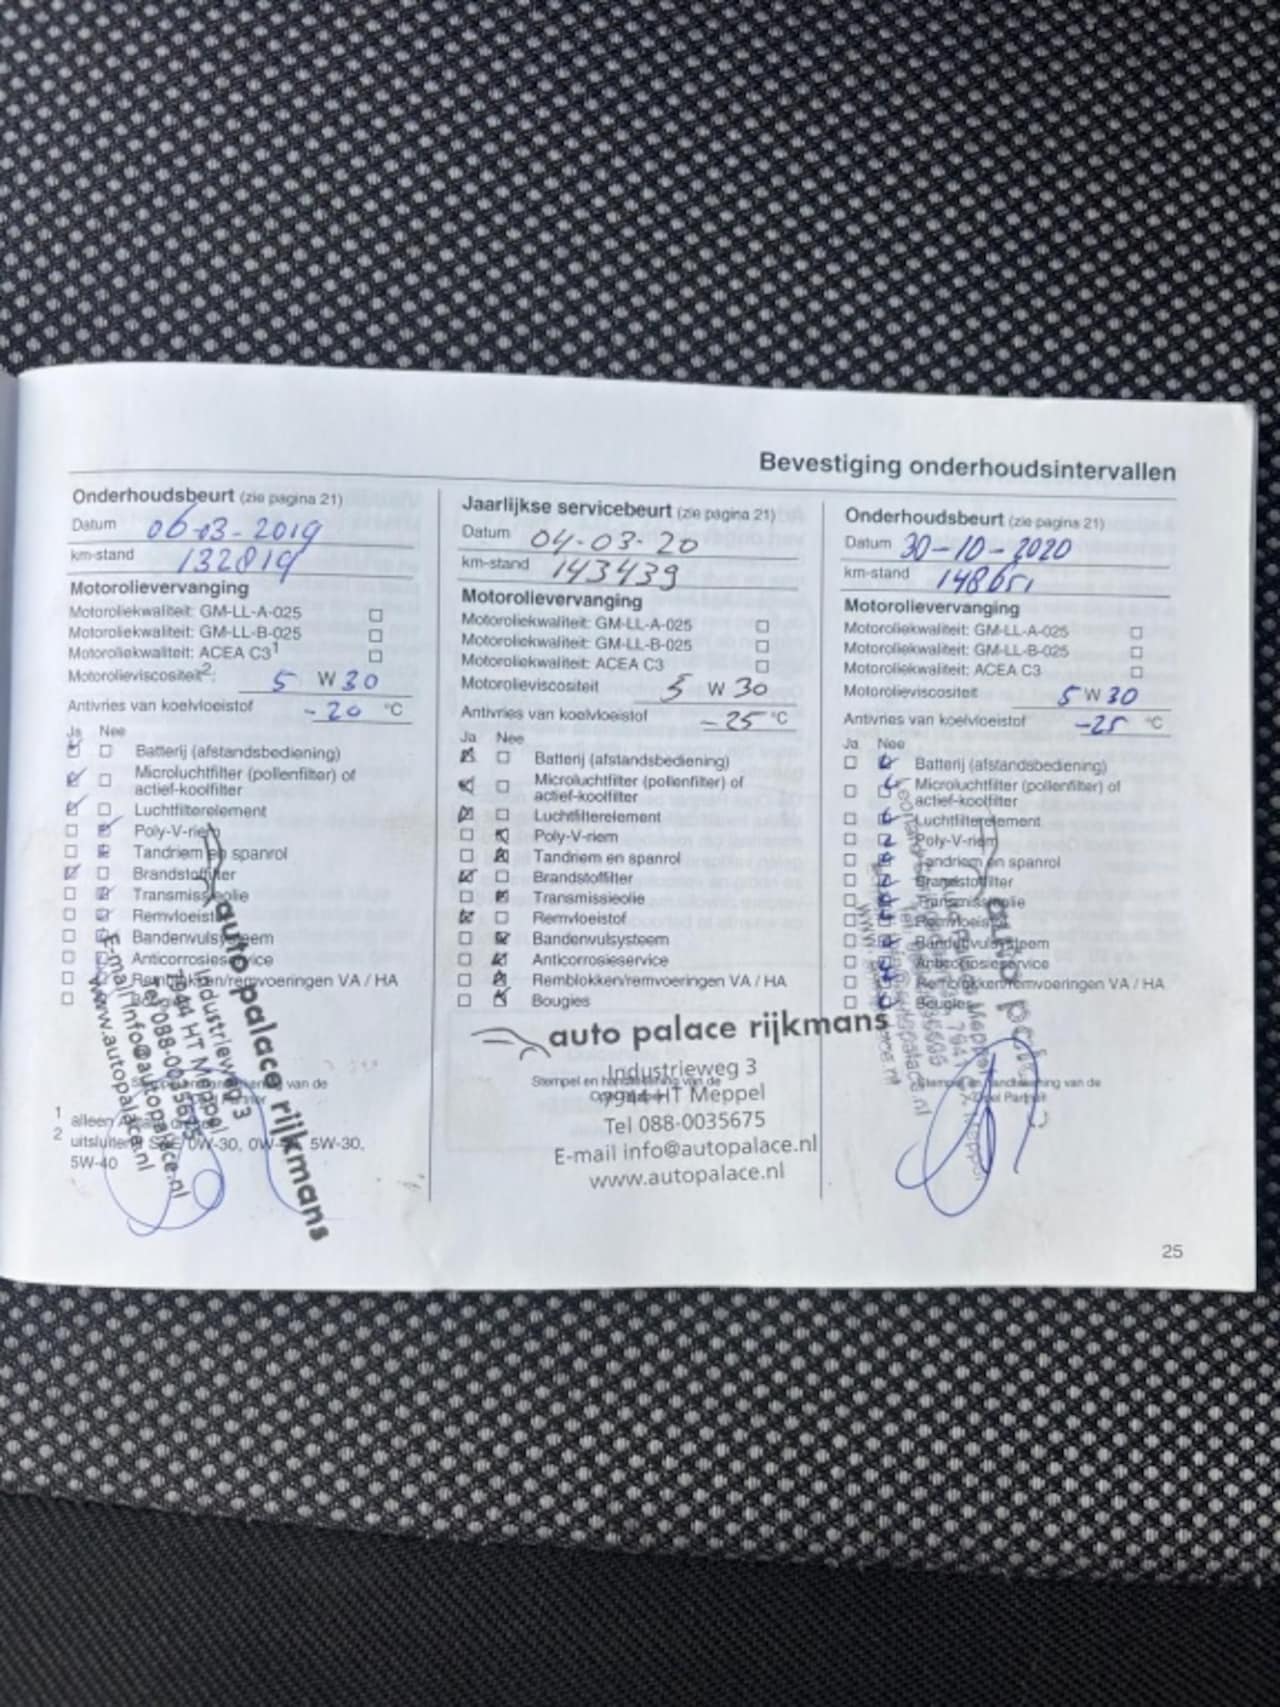 Bevestiging onderhoudsintervallen
Onderhoudsbeurt (zie pagina 21)
Datum 06-03-2019
km-stand 132819
Motorolievervanging
Motoroliekwaliteit: GM-LL-A-025
Motoroliekwaliteit: GM-LL-B-025
Motoroliekwaliteit: ACEA C3¹
Motorolieviscositeit²: 5 W 30
Antivries van koelvloeistof -20 °C
Ja Nee
Batterij (afstandsbediening)
Microluchtfilter (pollenfilter) of
actief-koolfilter
Luchtfilterelement
Poly-V-riem
Tandriem en spanrol
Brandstoffilter
Transmissieolie
Remvloeistof
Bandenvulsysteem
Anticorrosieservice
Remblokken/remvoeringen VA / HA
Bougies
auto palace rijkmans
Industrieweg 3
7944 HT Meppel
Tel 088-0035675
E-mail info@autopalace.nl
www.autopalace.nl
van de
1 alleen
2 uitsluitend SAE 0W-30, 0W- 5W-30,
5W-40
Jaarlijkse servicebeurt (zie pagina 21)
Datum 04-03-20
km-stand 143439
Motorolievervanging
Motoroliekwaliteit: GM-LL-A-025
Motoroliekwaliteit: GM-LL-B-025
Motoroliekwaliteit: ACEA C3
Motorolieviscositeit 5 W 30
Antivries van koelvloeistof -25 °C
Ja Nee
Batterij (afstandsbediening)
Microluchtfilter (pollenfilter) of
actief-koolfilter
Luchtfilterelement
Poly-V-riem
Tandriem en spanrol
Brandstoffilter
Transmissieolie
Remvloeistof
Bandenvulsysteem
Anticorrosieservice
Remblokken/remvoeringen VA / HA
Bougies
auto palace rijkmans
Industrieweg 3
Stempel en handtekening van de
7944 HT Meppel
Tel 088-0035675
E-mail info@autopalace.nl
www.autopalace.nl
Onderhoudsbeurt (zie pagina 21)
Datum 30-10-2020
km-stand
Motorolievervanging
Motoroliekwaliteit: GM-LL-A-025
Motoroliekwaliteit: GM-LL-B-025
Motoroliekwaliteit: ACEA C3
Motorolieviscositeit 5 W 30
Antivries van koelvloeistof -25 °C
Ja Nee
Batterij (afstandsbediening)
Microluchtfilter (pollenfilter) of
actief-koolfilter
Luchtfilterelement
Poly-V-riem
Tandriem en spanrol
Brandstoffilter
Transmissieolie
Remvloeistof
Bandenvulsysteem
Anticorrosieservice
Remblokken/remvoeringen VA / HA
Bougies
Stempel en handtekening van de
Opel Partner
25